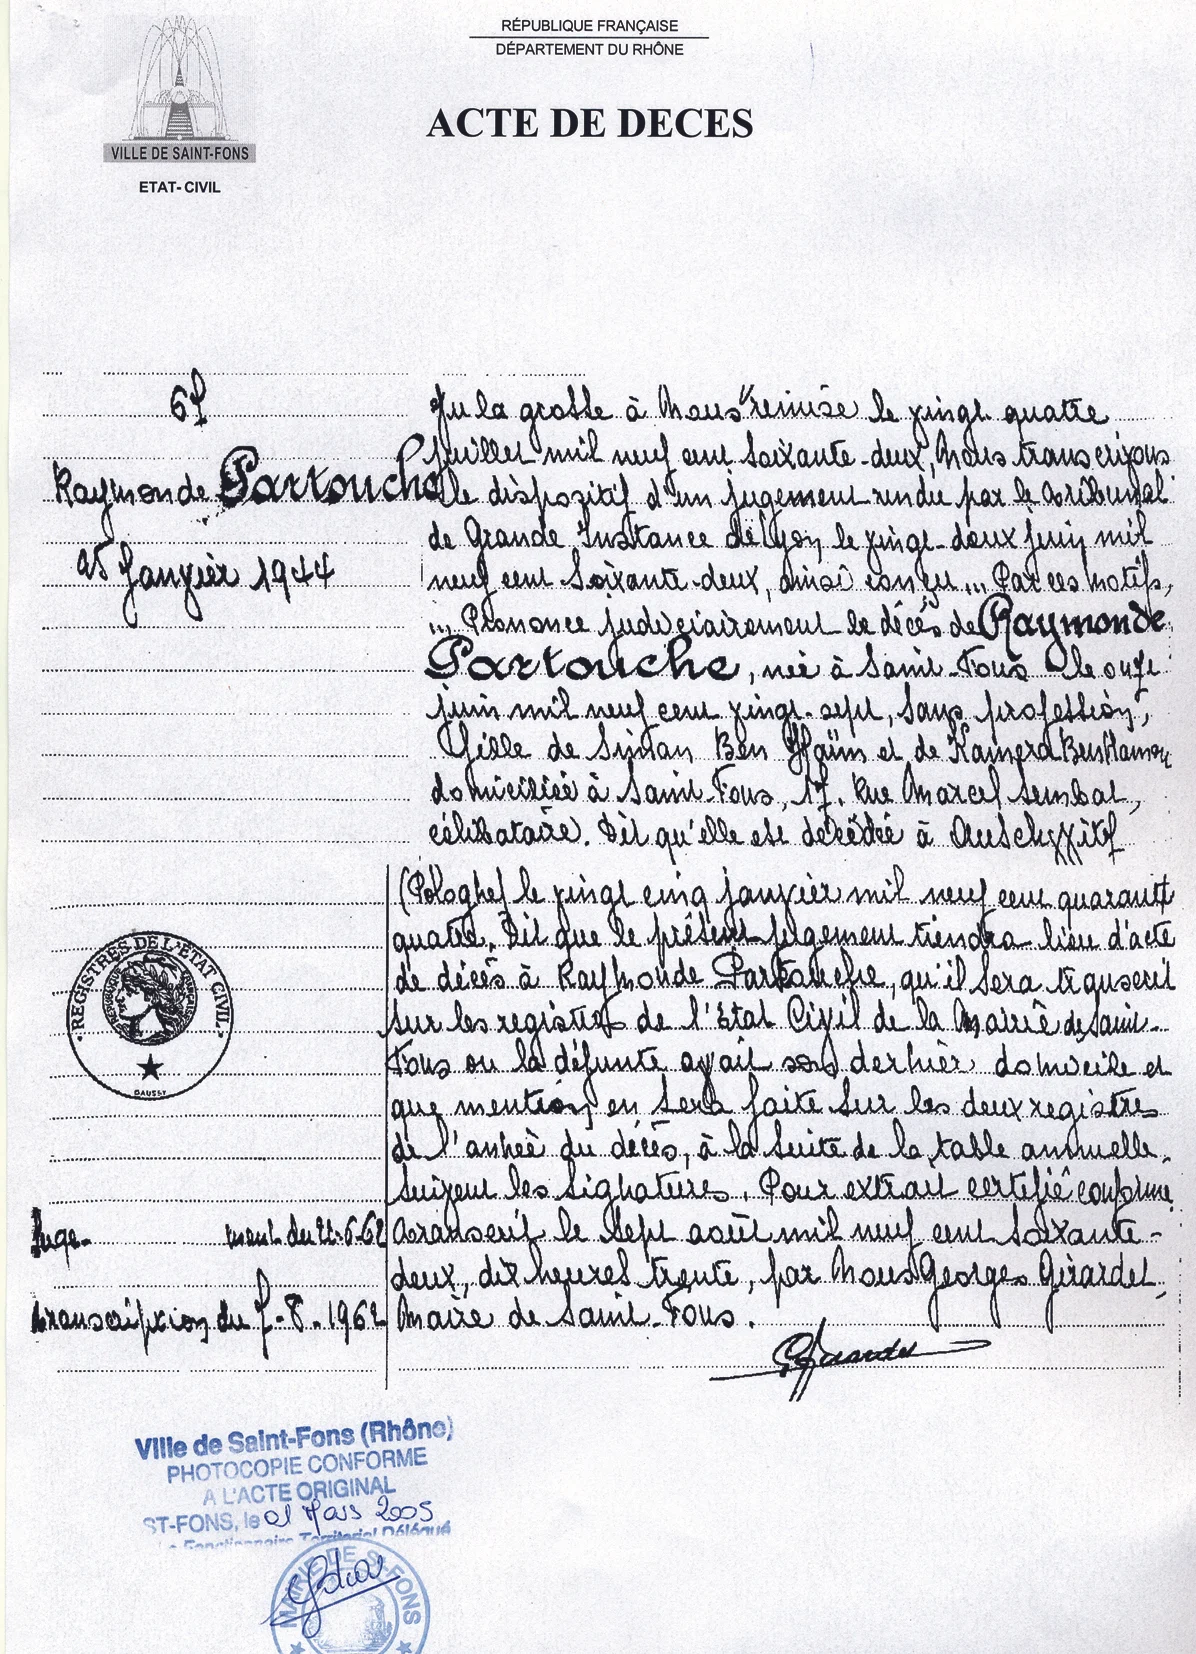 RÉPUBLIQUE FRANÇAISE
DÉPARTEMENT DU RHÔNE
ACTE DE DECES
VILLE DE SAINT-FONS
ETAT-CIVIL
Raymonde Partouche
25 Janvier 1944
Vu la grosse à Nous remise le vingt quatre
juillet mil neuf cent soixante-deux, Nous transcrivons
le dispositif d'un jugement rendu par le Tribunal
de Grande Instance de Lyon le vingt-deux juin mil
neuf cent soixante-deux, ainsi conçu ... Par ces motifs,
... Prononce judiciairement le décés de Raymonde
Partouche, née à Saint-Fons le onze
juin mil neuf cent vingt-sept, sans profession,
fille de Simon Ben Haïm et de Kamera Ben Hamou
domiciliée à Saint-Fons, 17, Rue Marcel Sembat,
célibataire. Dit qu'elle est décédée à Auschwitz
(Pologne) le vingt cinq janvier mil neuf cent quarante
quatre. Dit que le présent jugement tiendra lieu d'acte
de décès à Raymonde Partouche, qu'il sera transcrit
sur les registres de l'Etat Civil de la Mairie de Saint-
Fons ou la défunte avait son dernier domicile et
que mention en sera faite sur les deux registres
de l'année du décès, à la suite de la table annuelle.
Suivent les signatures. Pour extrait certifié conforme
Transcrit le sept août mil neuf cent soixante-
deux, dix heures trente, par Nous Georges Girardet,
Maire de Saint-Fons.
Juge-ment du 22-6-62
Transcription du 7-8-1962
REGISTRES DE L'ETAT CIVIL
Ville de Saint-Fons (Rhône)
PHOTOCOPIE CONFORME
A L'ACTE ORIGINAL
ST-FONS, le 01 Mars 2005
Le Fonctionnaire Territorial Délégué
MAIRIE DE ST-FONS